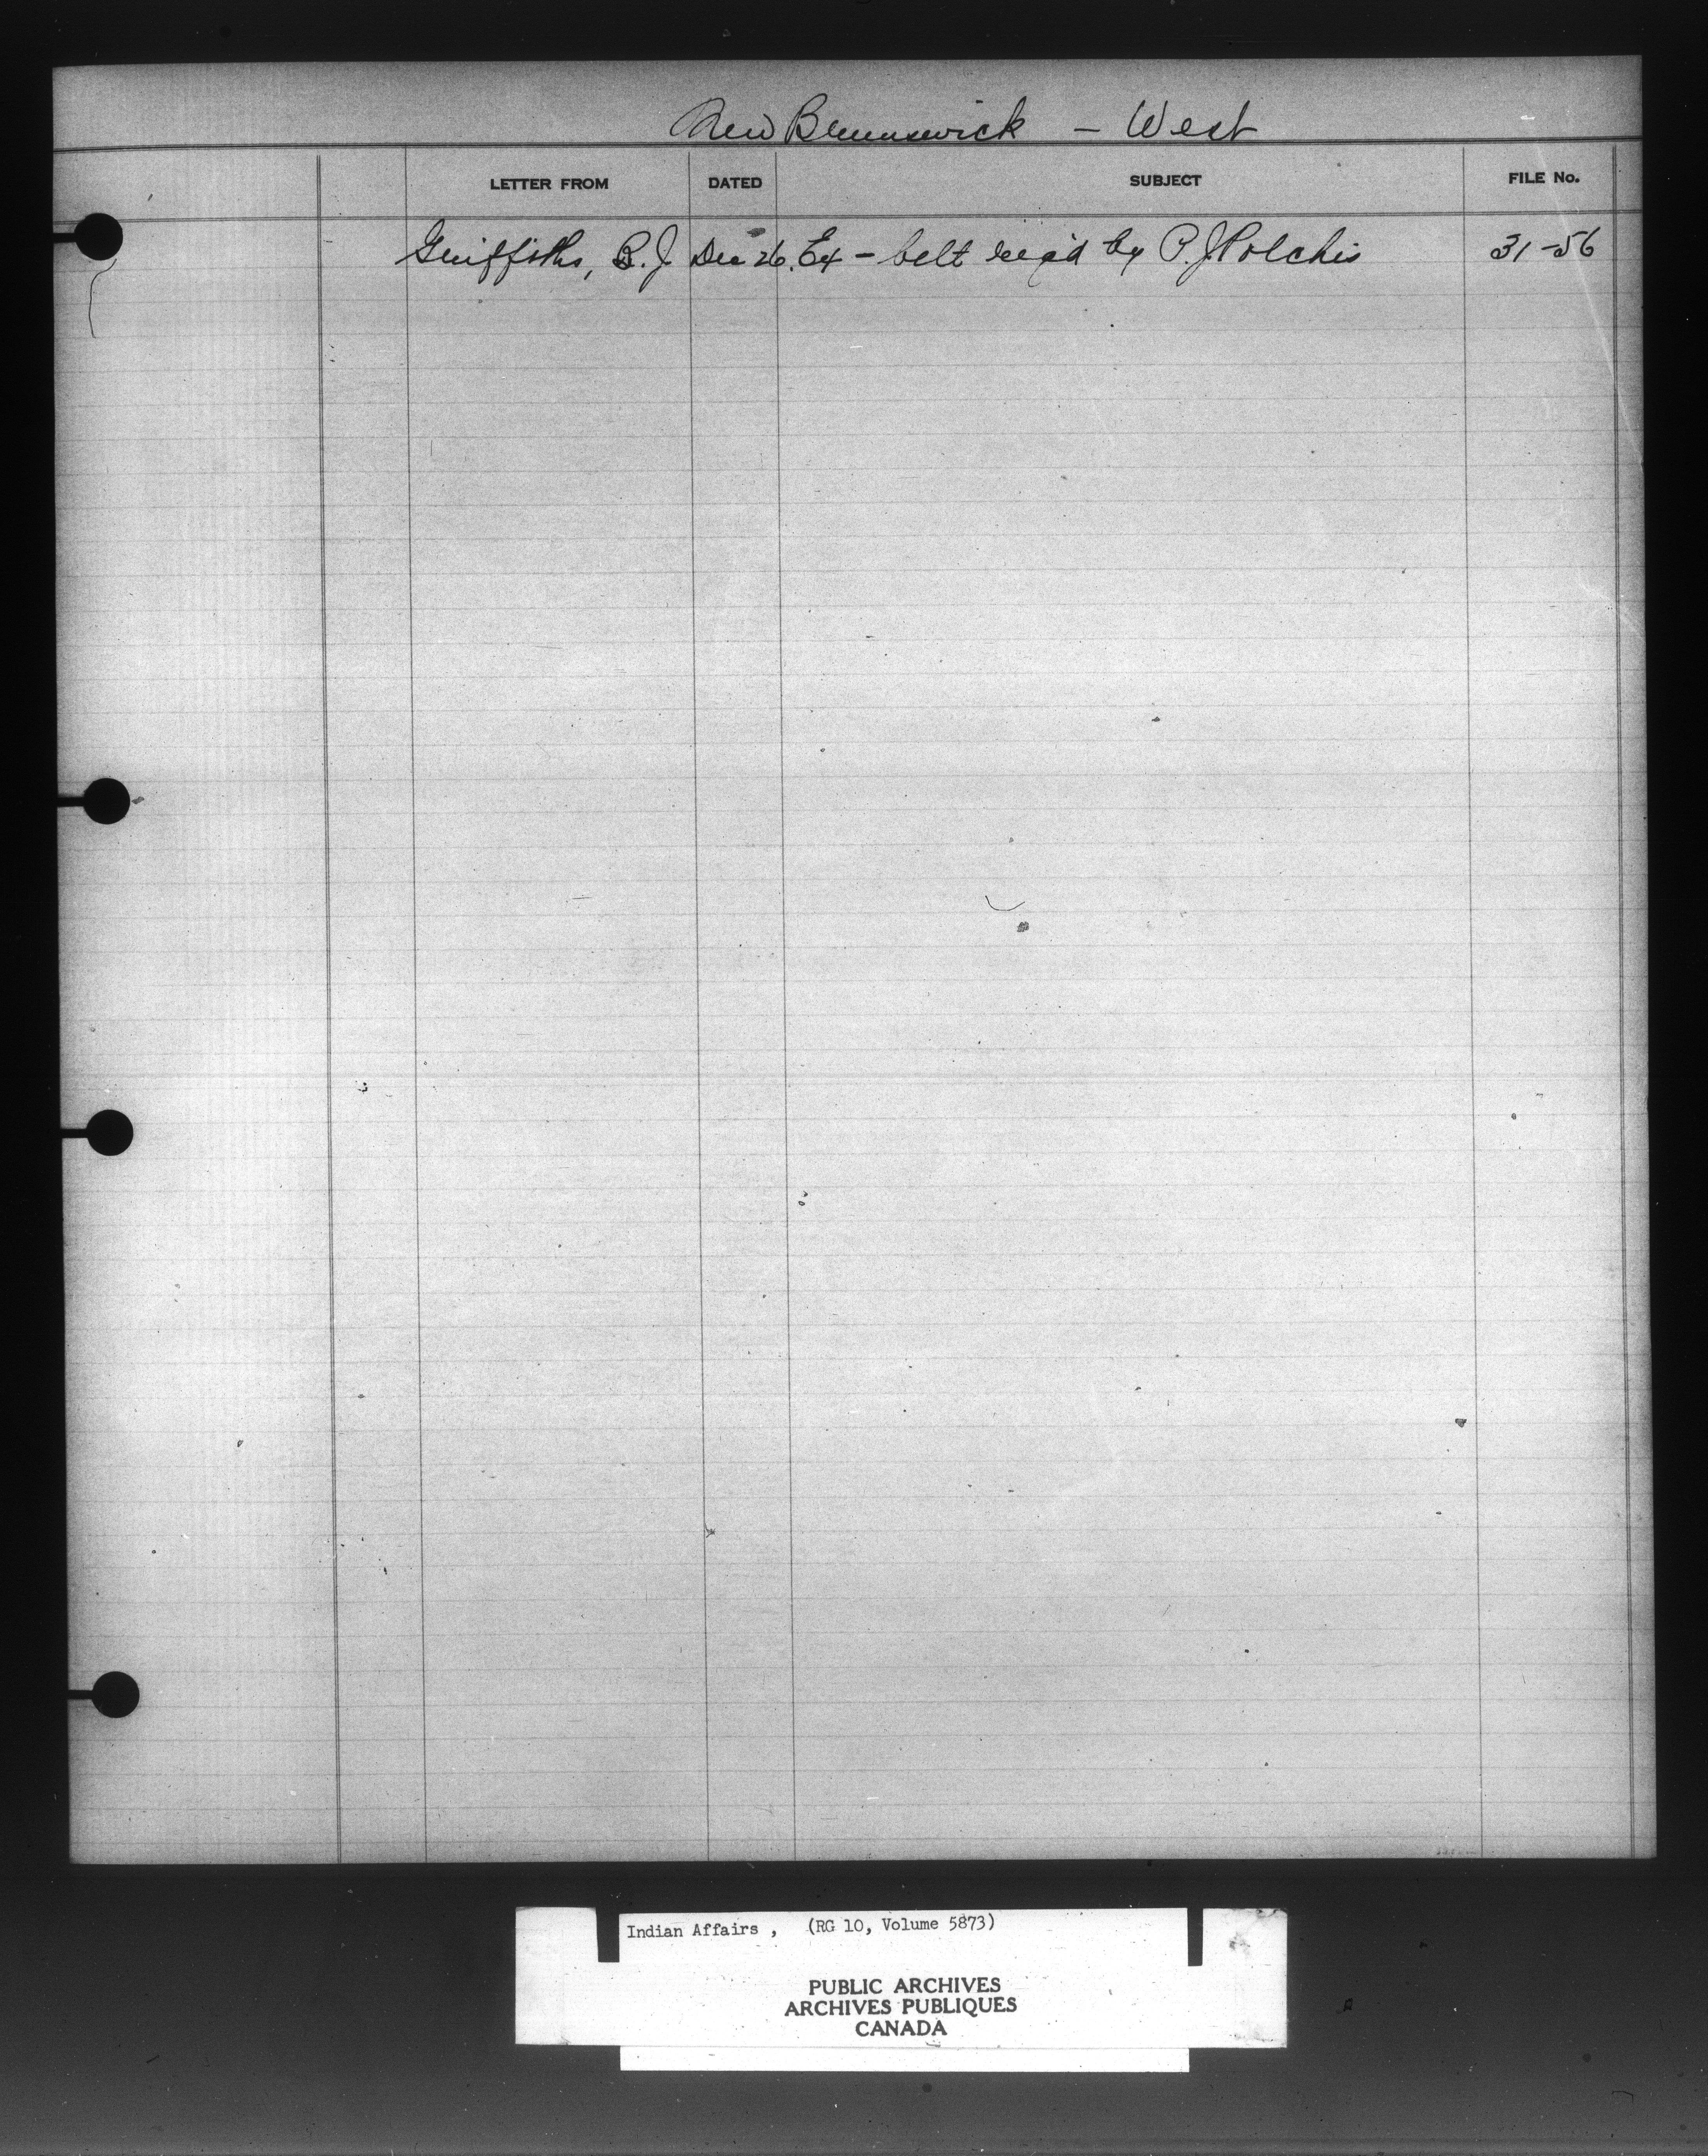 New Brunswick – West
LETTER FROM DATED SUBJECT FILE No.
Griffiths, B.J. Dec 26. Ex – belt req'd by P.J. Polchis 31-56
Indian Affairs , (RG 10, Volume 5873)
PUBLIC ARCHIVES
ARCHIVES PUBLIQUES
CANADA